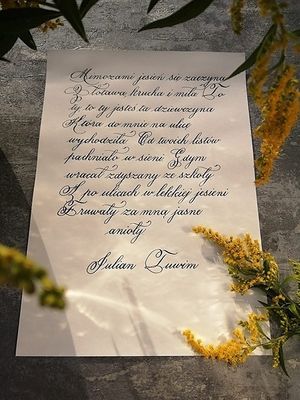 Mimozami jesień się zaczyna
Złotawa krucha i miła To
ty to ty jesteś ta dziewczyna
Która do mnie na ulicę
wychodziła Od twoich listów
pachniało w sieni Gdym
wracał zdyszany ze szkoły
A po ulicach w lekkiej jesieni
Fruwały za mną jasne
anioły
Julian Tuwim